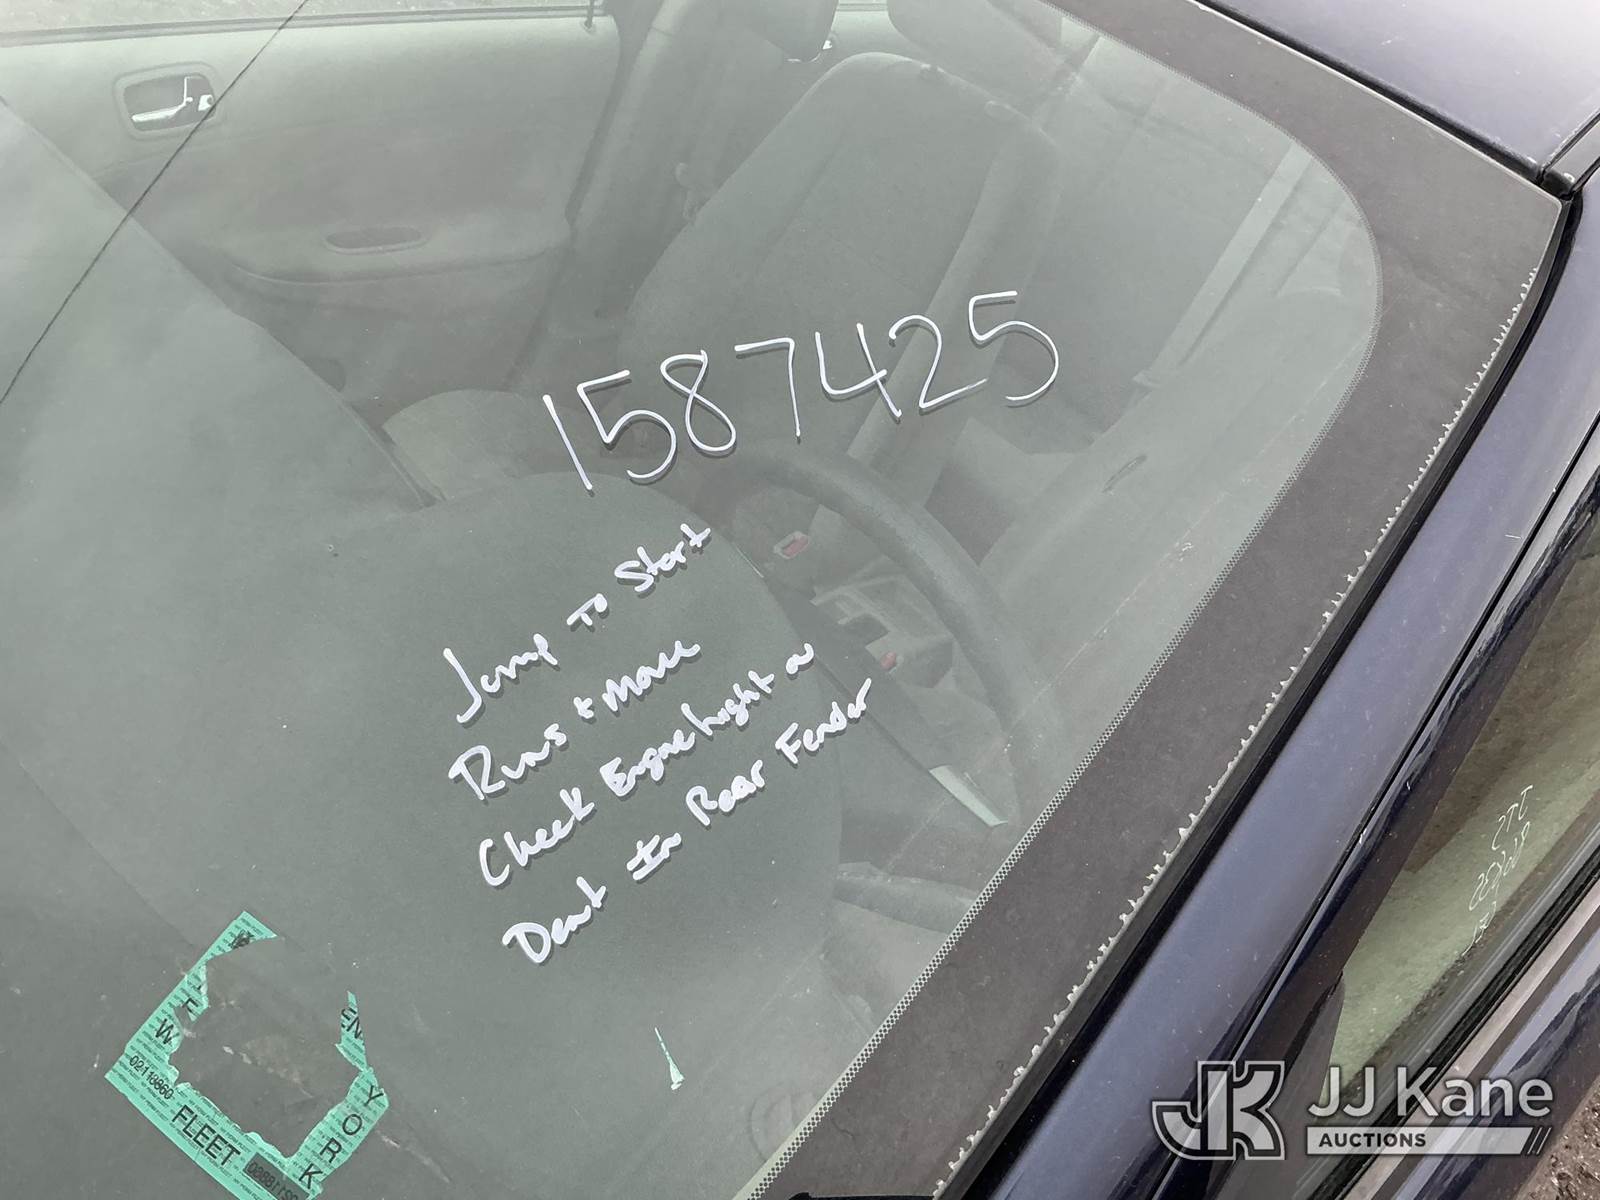 1587425
Jump To Start
Runs + Moves
Check Engine Light on
Dent In Rear Fender
NEW YORK
FLEET
02118860
02118860
JJ Kane
AUCTIONS